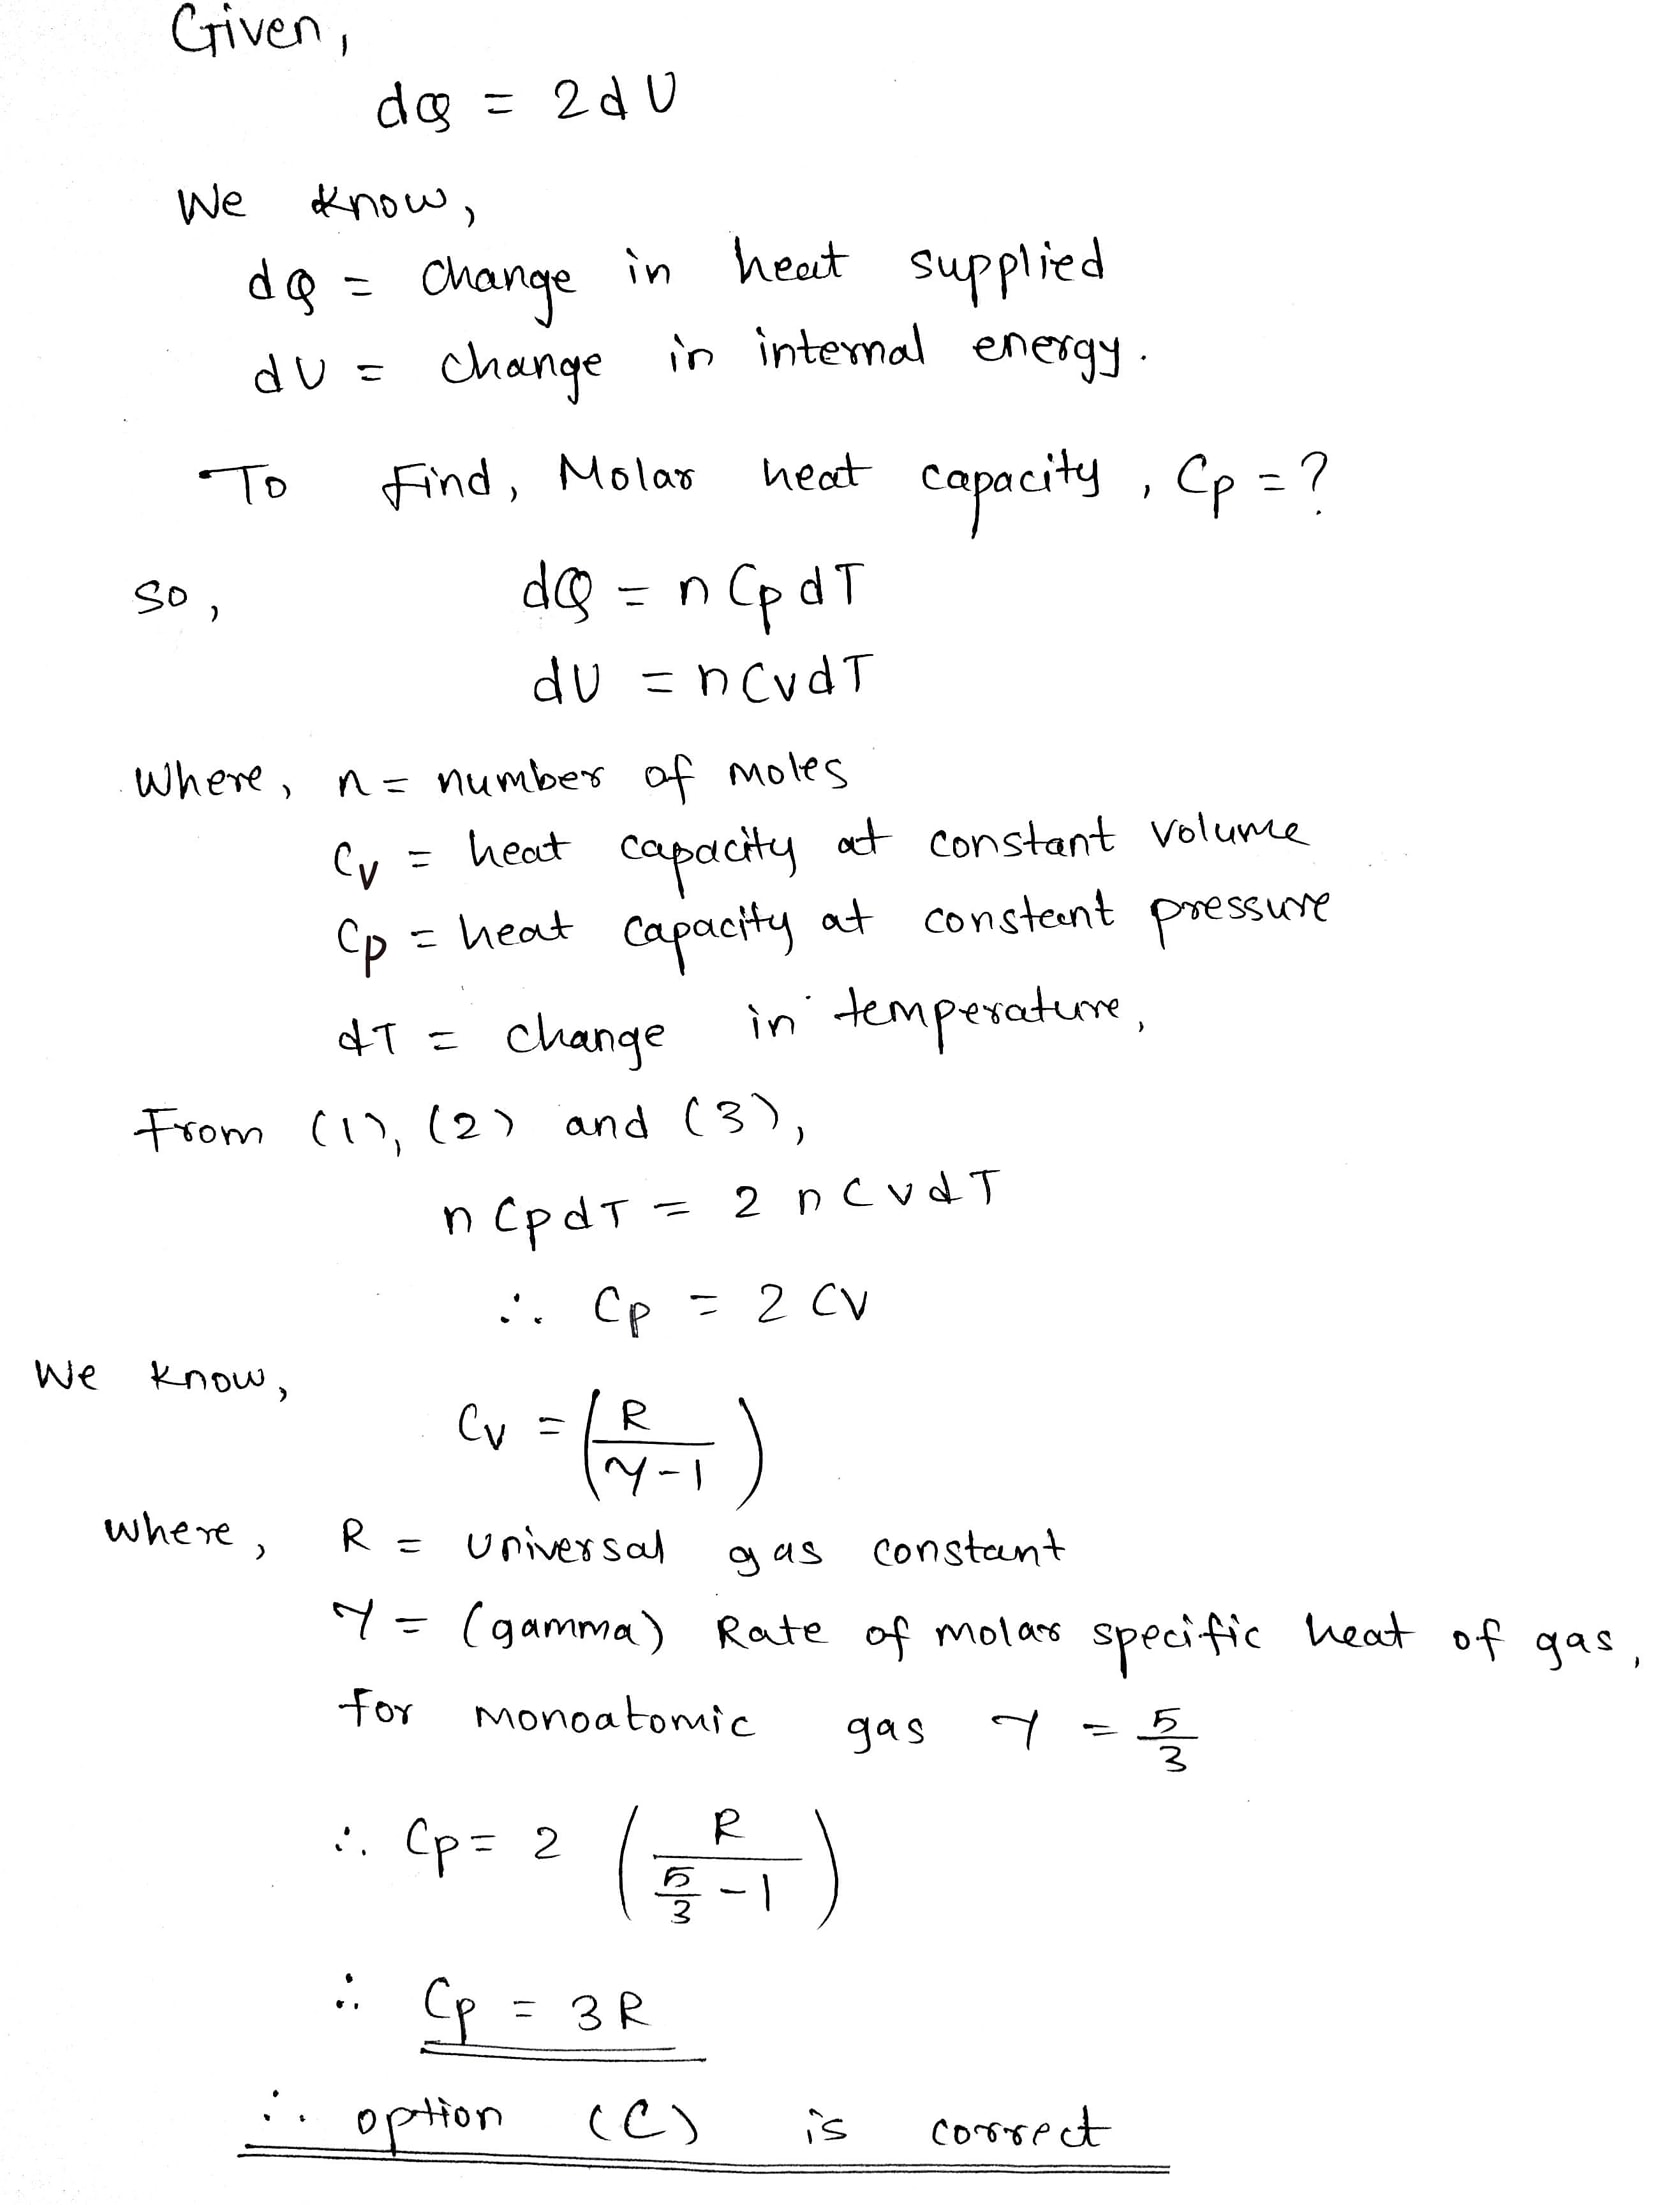 Given,
dQ = 2dU
We know,
dQ = change in heat supplied
dU = change in internal energy.
To find, Molar heat capacity, Cp = ?
so, dQ = n Cp dT
dU = n Cv dT
Where, n = number of moles
Cv = heat capacity at constant volume
Cp = heat capacity at constant pressure
dT = change in temperature,
From (1), (2) and (3),
n Cp dT = 2 n Cv dT
∴ Cp = 2 Cv
We know,
Cv = (R / γ-1)
where, R = universal gas constant
γ = (gamma) Rate of molar specific heat of gas,
for monoatomic gas γ = 5/3
∴ Cp = 2 (R / 5/3 - 1)
∴ Cp = 3R
∴ option (C) is correct